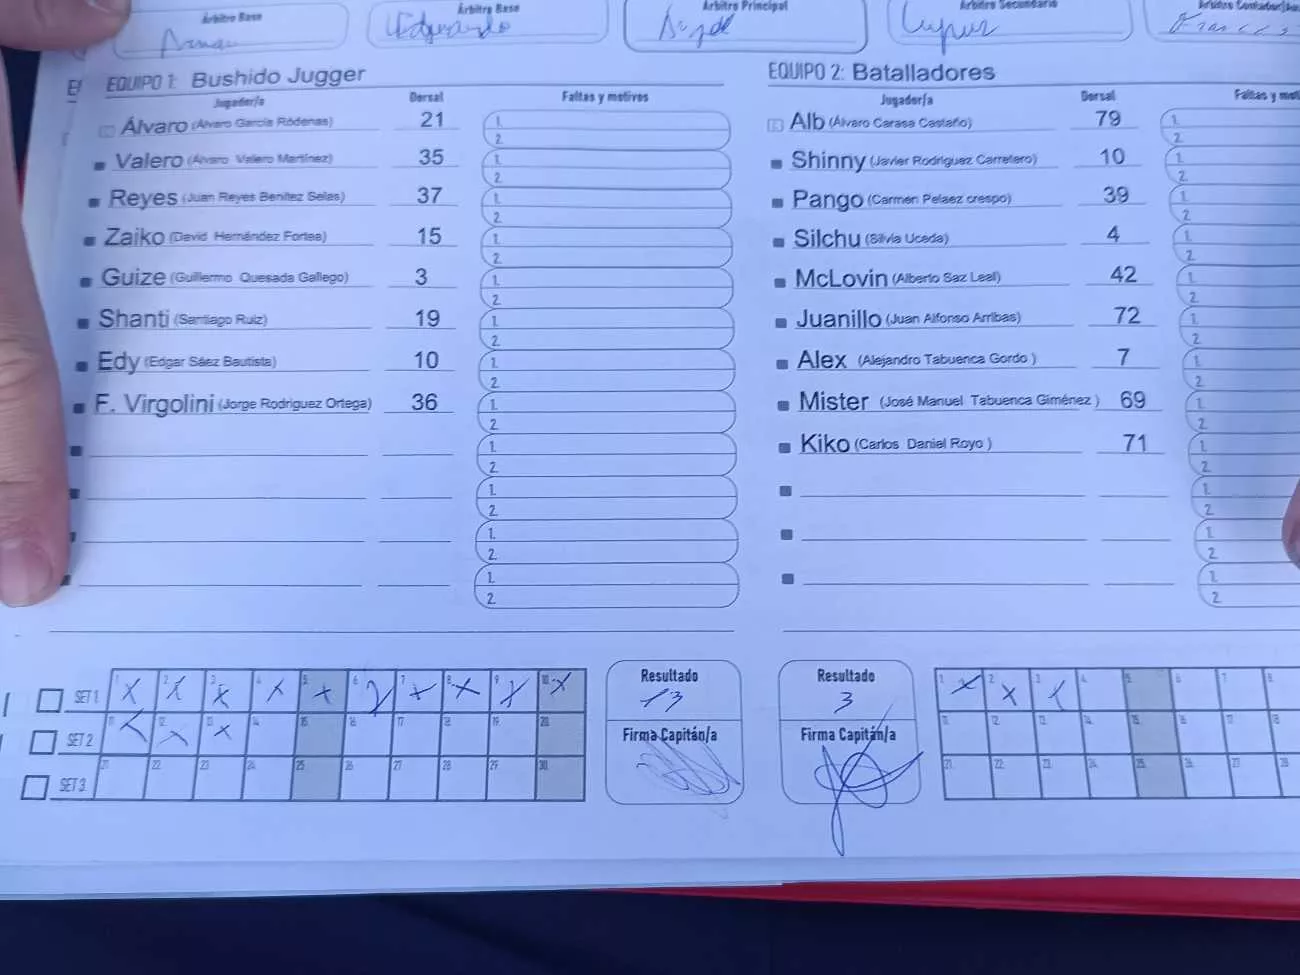 Árbitro Base
Árbitro Base
Árbitro Principal
Árbitro Secundario
Eduardo
Angel
EQUIPO 1: Bushido Jugger
Jugador/a Dorsal Faltas y motivos
Álvaro (Álvaro García Ródenas) 21 1. 2.
Valero (Álvaro Valero Martínez) 35 1. 2.
Reyes (Juan Reyes Benítez Selas) 37 1. 2.
Zaiko (David Hernández Fortea) 15 1. 2.
Guize (Guillermo Quesada Gallego) 3 1. 2.
Shanti (Santiago Ruiz) 19 1. 2.
Edy (Edgar Sáez Bautista) 10 1. 2.
F. Virgolini (Jorge Rodríguez Ortega) 36 1. 2.
1. 2.
1. 2.
1. 2.
1. 2.
EQUIPO 2: Batalladores
Jugador/a Dorsal Faltas y
Alb (Álvaro Carasa Castaño) 79 1. 2.
Shinny (Javier Rodríguez Carretero) 10 1. 2.
Pango (Carmen Pelaez crespo) 39 1. 2.
Silchu (Silvia Uceda) 4 1. 2.
McLovin (Alberto Saz Leal) 42 1. 2.
Juanillo (Juan Alfonso Arribas) 72 1. 2.
Alex (Alejandro Tabuenca Gordo ) 7 1. 2.
Mister (José Manuel Tabuenca Giménez ) 69 1. 2.
Kiko (Carlos Daniel Royo ) 71 1. 2.
1. 2.
1. 2.
1. 2.
SET 1 1 2 3 4 5 6 7 8 9 10
SET 2 11 12 13 14 15 16 17 18 19 20
SET 3 21 22 23 24 25 26 27 28 29 30
Resultado
13
Firma Capitán/a
Resultado
3
Firma Capitán/a
1 2 3 4 5 6 7 8
11 12 13 14 15 16 17 18
21 22 23 24 25 26 27 28